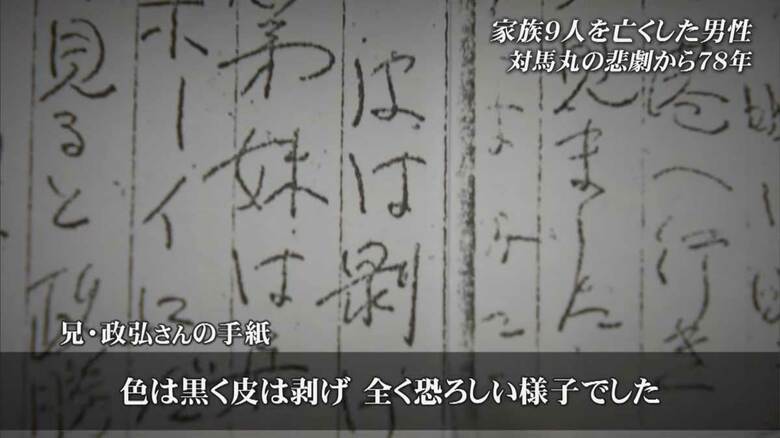 家族9人を亡くした男性
対馬丸の悲劇から78年
港へ行き
見ました
皮は剥げ
弟妹は
ボーイに
見ると政勝
兄・政弘さんの手紙
色は黒く皮は剥げ 全く恐ろしい様子でした